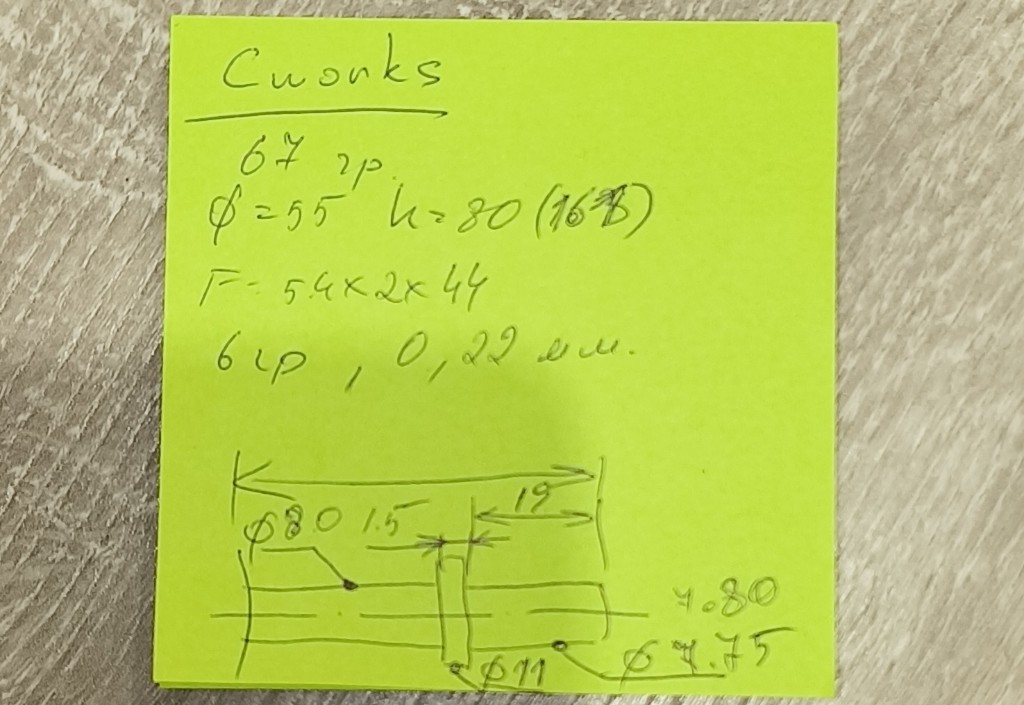 Cworks
67 гр.
ϕ=55 h=80 (168)
F= 5.4x2x44
6гр, 0,22 мм.
19
ϕ8.0 1.5
7.80
ϕ 7.75
ϕ11